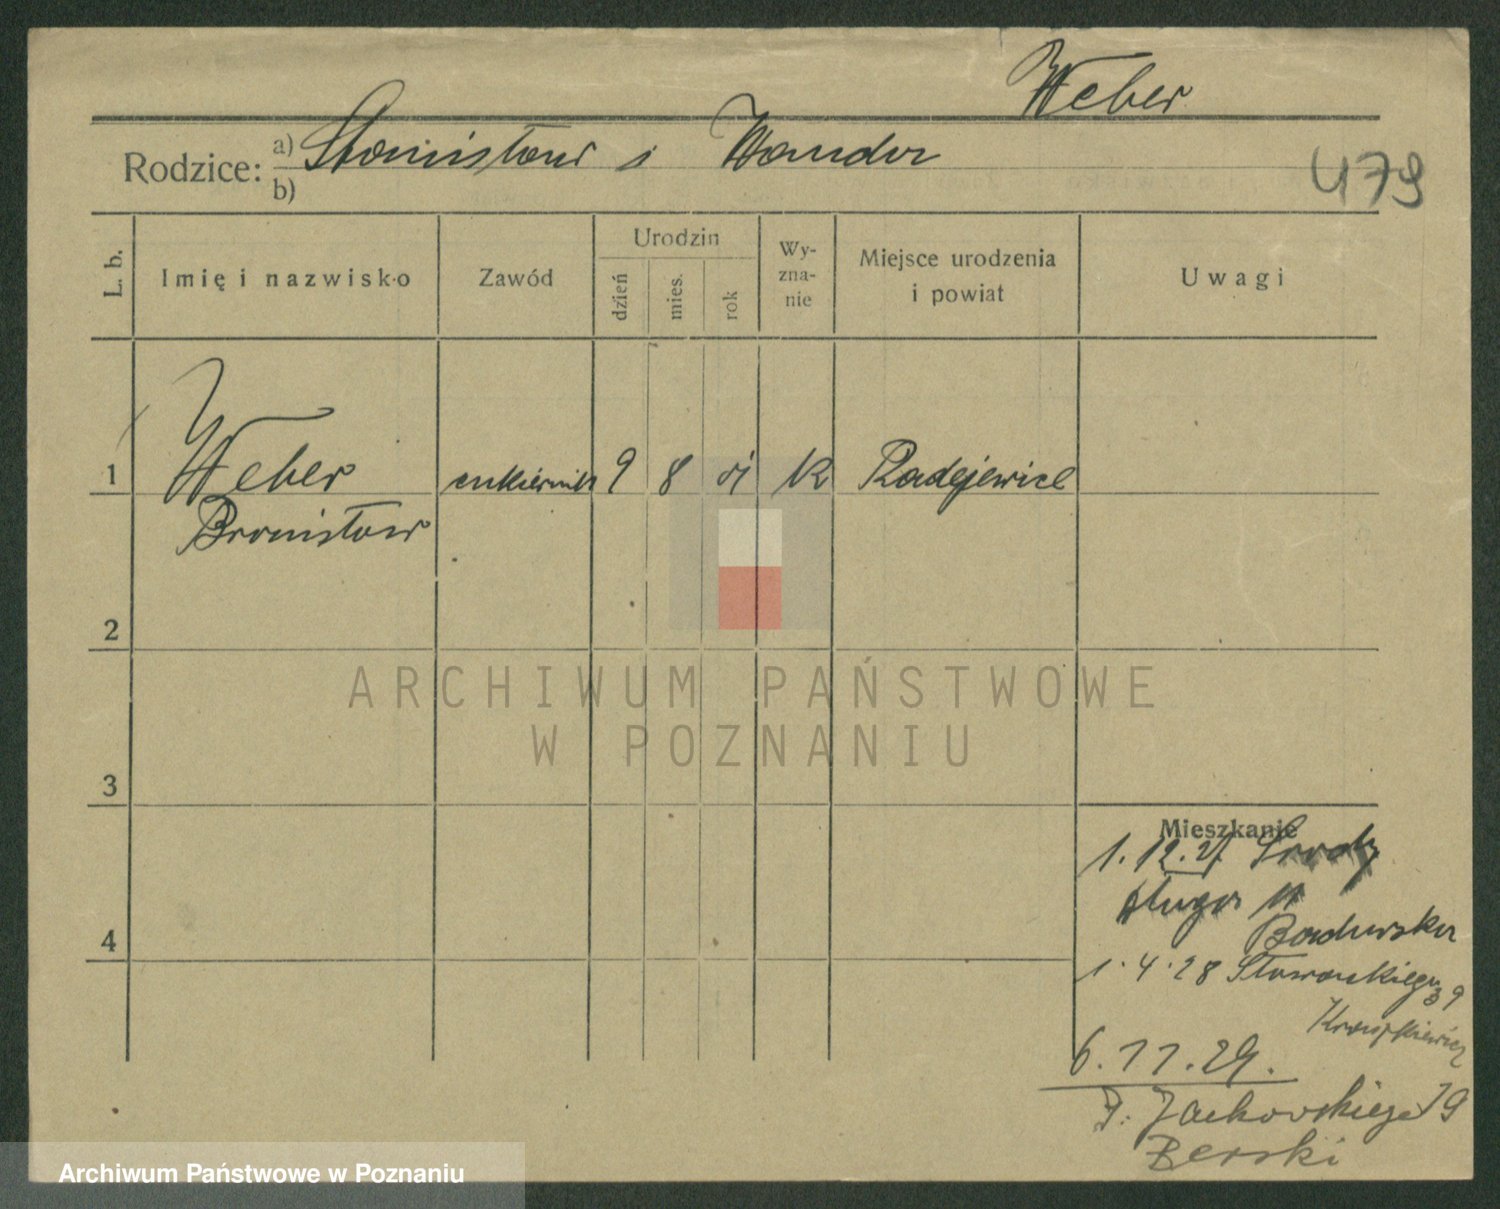 Weber
Rodzice: a) Stanisław i Wanda
b)
479
L. b.
Imię i nazwisko
Zawód
Urodzin
dzień
mies.
rok
Wy-
zna-
nie
Miejsce urodzenia
i powiat
Uwagi
1
Weber
Bronisław
cukiernik
9
8
k
Radejewice
2
3
4
Mieszkanie
1.12.27
Długa 11
1.4.28 Słowackiego 39
6.11.29.
P. Jackowskiego 19
Berski
ARCHIWUM PAŃSTWOWE
W POZNANIU
Archiwum Państwowe w Poznaniu